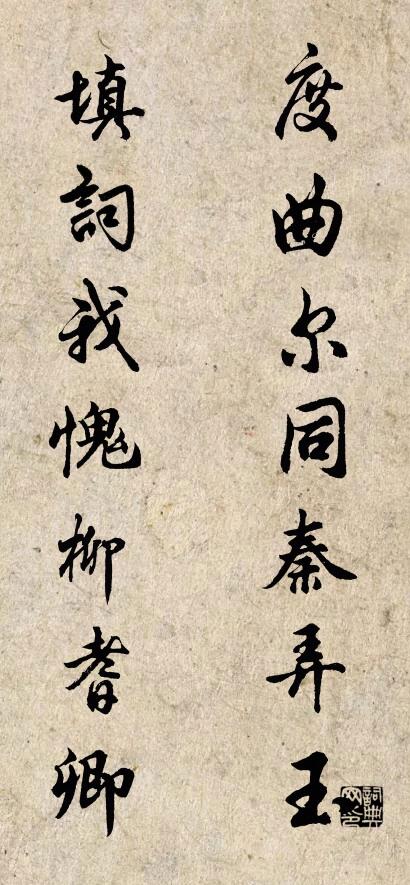 度曲尔同秦弄王
填詞我愧柳耆卿
詞典网印